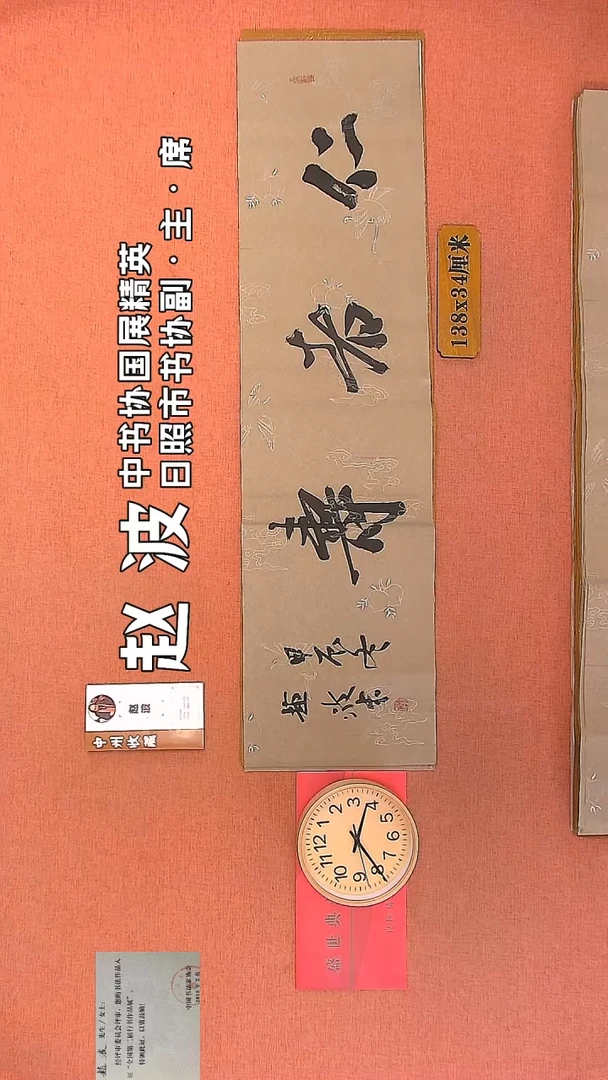 中书协国展精英
日照市书协副·主·席
赵波
仁者寿
甲辰冬
赵波书
138x34厘米
赵波
中州收藏
12
1
2
3
4
5
6
7
8
9
10
11
盛世典
赵波 先生/女士:
经评审委员会评审，您的书法作品入
展“全国第二届行书作品展”，
特颁此证，以资鼓励!
中国书法家协会